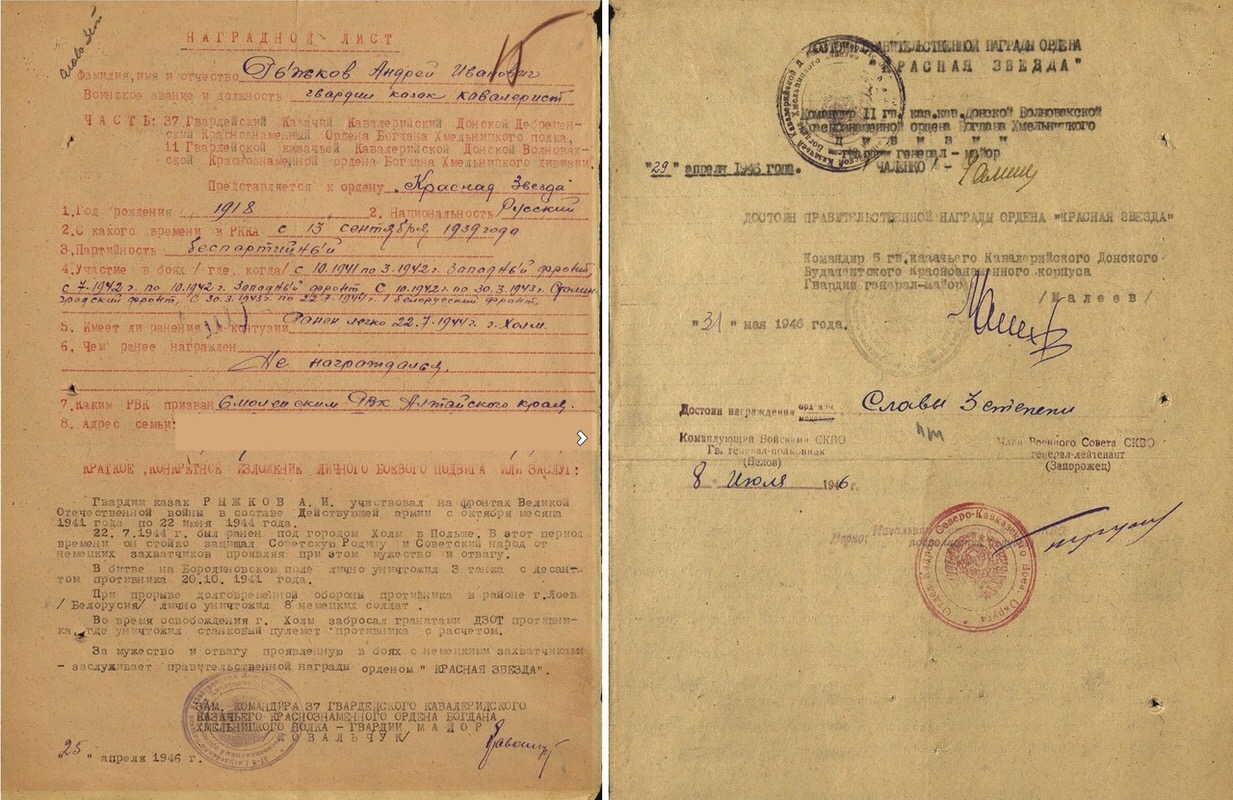 НАГРАДНОЙ ЛИСТ
Фамилия,имя и отчество Рыжков Андрей Иванович
Воинское звание и должность гвардии казак кавалерист
ЧАСТЬ: 37 Гвардейский Казачий Кавалерийский Донской Дебрецен-
ский Краснознаменный Ордена Богдана Хмельницкого полка,
11 Гвардейской казачьей Кавалерийской Донской Волновах-
ской Краснознаменной ордена Богдана Хмельницкого дивизии.
Представляется к ордену „Красная Звезда"
1.Год рождения 1918 2. Национальность Русский
2.С какого времени в РККА с 13 сентября 1939 года
3.Партийность беспартийный
4.Участие в боях / где, когда/ с 10.1941 по 3.1942 г. Западный фронт,
с 7.1942 г. по 10.1942 г. Западный фронт, с 10.1942 г. по 30.3.1943 г. Сталин-
градский фронт, с 30.3.1943 г. по 22.7.1944 г. 1 Белорусский фронт,
5. Имеет ли ранения и контузии Ранен легко 22.7.1944 г. г. Холм.
6. Чем ранее награжден
Не награждался.
7.Каким РВК призван Смоленским РВК Алтайского края.
8. Адрес семьи:
КРАТКОЕ ,КОНКРЕТНОЕ ИЗЛОЖЕНИЕ ЛИЧНОГО БОЕВОГО ПОДВИГА ИЛИ ЗАСЛУГ:
Гвардии казак РЫЖКОВ А.И. участвовал на фронтах Великой
Отечественной войны в составе Действующей армии с октября месяца
1941 года по 22 июня 1944 года.
22.7.1944 г. был ранен под городом Холм в Польше. В этот период
времени он стойко защищал Советскую Родину и Советский народ от
немецких захватчиков проявляя при этом мужество и отвагу.
В битве на Бородиновском поле лично уничтожил 3 танка с десан-
том противника 20.10. 1941 года.
При прорыве долговременной обороны противника в районе г.Лоев
/ Белорусия/ лично уничтожил 8 немецких солдат .
Во время освобождения г. Холм забросал гранатами ДЗОТ противни-
ка, где уничтожил станковый пулемет противника с расчетом.
За мужество и отвагу проявленную в боях с немецкими захватчиками
- заслуживает правительственной награды орденом " КРАСНАЯ ЗВЕЗДА".
ЗАМ. КОМАНДИРА 37 ГВАРДЕЙСКОГО КАВАЛЕРИЙСКОГО
КАЗАЧЬЕГО КРАСНОЗНАМЕННОГО ОРДЕНА БОГДАНА
ХМЕЛЬНИЦКОГО ПОЛКА - ГВАРДИИ МАЙОР
/КОВАЛЬЧУК/
"25" апреля 1946 г.
ДОСТОИН ПРАВИТЕЛЬСТВЕННОЙ НАГРАДЫ ОРДЕНА
"КРАСНАЯ ЗВЕЗДА"
Командир 11 гв. каз.кав.Донской Волновахской
Краснознаменной ордена Богдана Хмельницкого
дивизии
Гвардии генерал - майор
"29" апреля 1946 года. / ЧАЛЕНКО / -
ДОСТОИН ПРАВИТЕЛЬСТВЕННОЙ НАГРАДЫ ОРДЕНА "КРАСНАЯ ЗВЕЗДА"
Командир 5 гв.казачьего Кавалерийского Донского
Будапештского Краснознаменного корпуса
Гвардии генерал-майор
/Малеев/
"31" мая 1946 года.
Достоин награждения ордена Славы 3 степени
медалью
Командующий Войсками СКВО Член Военного Совета СКВО
Гв. генерал-полковник генерал-лейтенант
(Белов) (Запорожец)
8 Июля 1946 г.
Верно: Начальник